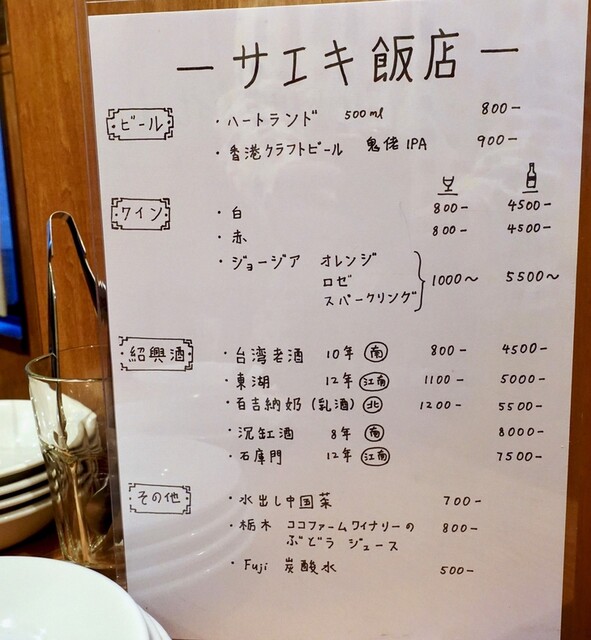 — サエキ飯店 —
ビール
・ハートランド 500ml 800-
・香港クラフトビール 鬼佬IPA 900-
ワイン
・白 800- 4500-
・赤 800- 4500-
・ジョージア オレンジ
ロゼ 1000〜 5500〜
スパークリング
紹興酒
・台湾老酒 10年 南 800- 4500-
・東湖 12年 江南 1100- 5000-
・百吉納奶(乳酒) 北 1200- 5500-
・沉缸酒 8年 南 8000-
・石庫門 12年 江南 7500-
その他
・水出し中国菜 700-
・栃木 ココファームワイナリーの 800-
ぶどう ジュース
・Fuji 炭酸水 500-